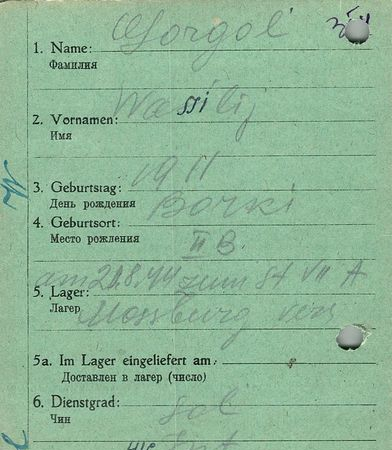 1. Name: Gorgol
Фамилия
2. Vornamen: Wassilij
Имя
3. Geburtstag: 1911
День рождения
4. Geburtsort: Borki
Место рождения
II B.
am 21.8.44 zum St VII A
5. Lager: Moosburg vers
Лагер
5a. Im Lager eingeliefert am
Доставлен в лагер (число)
6. Dienstgrad: Sol
Чин